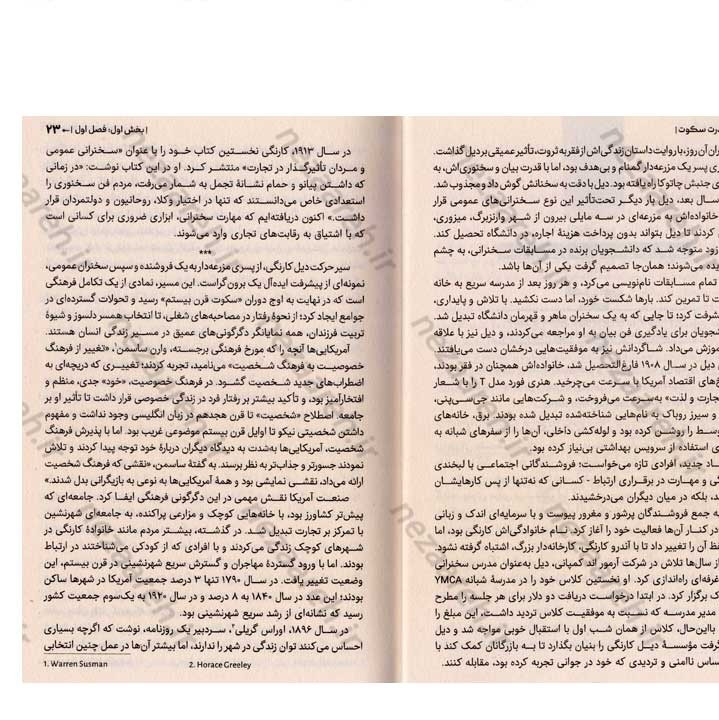 رت سکوت |
ران آن روز، با روایت داستان زندگی‌اش از فقر به ثروت، تأثیر عمیقی بر دیل گذاشت.
ی پسر یک مزرعه‌دار گمنام و بی‌هدف بود، اما با قدرت بیان و سخنوری‌اش، به
ی جنبش چاتوکا راه یافته بود. دیل با دقت به سخنانش گوش داد و مجذوب شد.
سال بعد، دیل بار دیگر تحت‌تأثیر این نوع سخنرانی‌های عمومی قرار
خانواده‌اش به مزرعه‌ای در سه مایلی بیرون از شهر وارنزبرگ، میزوری،
کردند تا دیل بتواند بدون پرداخت هزینهٔ اجاره، در دانشگاه تحصیل کند.
زود متوجه شد که دانشجویان برنده در مسابقات سخنرانی، به چشم
یده می‌شوند؛ همان‌جا تصمیم گرفت یکی از آن‌ها باشد.
تمام مسابقات نام‌نویسی می‌کرد، و هر روز بعد از مدرسه سریع به خانه
ت تا تمرین کند. بارها شکست خورد، اما دست نکشید. با تلاش و پایداری،
شرفت کرد؛ تا جایی که به یک سخنران ماهر و قهرمان دانشگاه تبدیل شد.
جویان برای یادگیری فن بیان به او مراجعه می‌کردند، و دیل نیز با علاقه
موزش می‌داد. شاگردانش نیز به موفقیت‌هایی درخشان دست می‌یافتند.
دیل در سال ۱۹۰۸ فارغ‌التحصیل شد، خانواده‌اش همچنان در فقر بودند،
خ‌های اقتصاد آمریکا با سرعت می‌چرخید. هنری فورد مدل T را با شعار
جارت و لذت» به‌سرعت می‌فروخت، و شرکت‌هایی مانند جی‌سی‌پنی،
و سیرز روباک به نام‌هایی شناخته‌شده تبدیل شده بودند. برق، خانه‌های
وسط را روشن کرده بود و لوله‌کشی داخلی، آن‌ها را از سفرهای شبانه به
ی استفاده از سرویس بهداشتی بی‌نیاز کرده بود.
اد جدید، افرادی تازه می‌خواست؛ فروشندگانی اجتماعی با لبخندی
ی و مهارت در برقراری ارتباط - کسانی که نه‌تنها از پس کارهایشان
ند، بلکه در میان دیگران می‌درخشیدند.
به جمع فروشندگان پرشور و مغرور پیوست و با سرمایه‌ای اندک و زبانی
در کنار آن‌ها فعالیت خود را آغاز کرد. نام خانوادگی‌اش کارنگی بود، اما
ظ آن را تغییر داد تا با آندرو کارنگی، کارخانه‌دار بزرگ، اشتباه گرفته نشود.
از سال‌ها تلاش در شرکت آرمور اند کمپانی، دیل به‌عنوان مدرس سخنرانی
غرفه‌ای راه‌اندازی کرد. او نخستین کلاس خود را در مدرسهٔ شبانه YMCA
ک برگزار کرد. در ابتدا درخواست دریافت دو دلار برای هر جلسه را مطرح
مدیر مدرسه که نسبت به موفقیت کلاس تردید داشت، این مبلغ را
بااین‌حال، کلاس از همان شب اول با استقبال خوبی مواجه شد و دیل
گرفت مؤسسهٔ دیل کارنگی را بنیان بگذارد تا به بازرگانان کمک کند با
ساس ناامنی و تردیدی که خود در جوانی تجربه کرده بود، مقابله کنند.
| بخش اول: فصل اول | ← ۲۳
در سال ۱۹۱۳، کارنگی نخستین کتاب خود را با عنوان «سخنرانی عمومی
و مردان تأثیرگذار در تجارت» منتشر کرد. او در این کتاب نوشت: «در زمانی
که داشتن پیانو و حمام نشانهٔ تجمل به شمار می‌رفت، مردم فن سخنوری را
استعدادی خاص می‌دانستند که تنها در اختیار وکلا، روحانیون و دولتمردان قرار
داشت.» اکنون دریافته‌ایم که مهارت سخنرانی، ابزاری ضروری برای کسانی است
که با اشتیاق به رقابت‌های تجاری وارد می‌شوند.
***
سیر حرکت دیل کارنگی، از پسری مزرعه‌دار به یک فروشنده و سپس سخنران عمومی،
نمونه‌ای از پیشرفت ایده‌آل یک برون‌گراست. این مسیر، نمادی از یک تکامل فرهنگی
است که در نهایت به اوج دوران «سکوت قرن بیستم» رسید و تحولات گسترده‌ای در
جوامع ایجاد کرد؛ از نحوهٔ رفتار در مصاحبه‌های شغلی، تا انتخاب همسر دلسوز و شیوهٔ
تربیت فرزندان، همه نمایانگر دگرگونی‌های عمیق در مسیر زندگی انسان هستند.
آمریکایی‌ها آنچه را که مورخ فرهنگی برجسته، وارن ساسمن۱، «تغییر از فرهنگ
خصوصیت به فرهنگ شخصیت» می‌نامید، تجربه کردند؛ تغییری که دریچه‌ای به
اضطراب‌های جدید شخصیت گشود. در فرهنگ خصوصیت، «خود» جدی، منظم و
افتخارآمیز بود، و تأکید بیشتر بر رفتار فرد در زندگی خصوصی قرار داشت تا تأثیر او بر
جامعه. اصطلاح «شخصیت» تا قرن هجدهم در زبان انگلیسی وجود نداشت و مفهوم
داشتن شخصیتی نیکو تا اوایل قرن بیستم موضوعی غریب بود. اما با پذیرش فرهنگ
شخصیت، آمریکایی‌ها به‌شدت به دیدگاه دیگران دربارهٔ خود توجه پیدا کردند و تلاش
نمودند جسورتر و جذاب‌تر به نظر برسند. به گفتهٔ ساسمن، «نقشی که فرهنگ شخصیت
ارائه می‌داد، نقشی نمایشی بود و همهٔ آمریکایی‌ها به نوعی به بازیگرانی بدل شدند.»
صنعت آمریکا نقش مهمی در این دگرگونی فرهنگی ایفا کرد. جامعه‌ای که
پیش‌تر کشاورز بود، با خانه‌هایی کوچک و مزارعی پراکنده، به جامعه‌ای شهرنشین
با تمرکز بر تجارت تبدیل شد. در گذشته، بیشتر مردم مانند خانوادهٔ کارنگی در
شهرهای کوچک زندگی می‌کردند و با افرادی که از کودکی می‌شناختند در ارتباط
بودند. اما با ورود گستردهٔ مهاجران و گسترش سریع شهرنشینی در قرن بیستم، این
وضعیت تغییر یافت. در سال ۱۷۹۰ تنها ۳ درصد جمعیت آمریکا در شهرها ساکن
بودند؛ این عدد در سال ۱۸۴۰ به ۸ درصد و در سال ۱۹۲۰ به یک‌سوم جمعیت کشور
رسید که نشانه‌ای از رشد سریع شهرنشینی بود.
در سال ۱۸۹۶، اوراس گریلی۲، سردبیر یک روزنامه، نوشت که اگرچه بسیاری
احساس می‌کنند توان زندگی در شهر را ندارند، اما بیشتر آن‌ها در عمل چنین انتخابی
1. Warren Susman 2. Horace Greeley
nezareh.ir